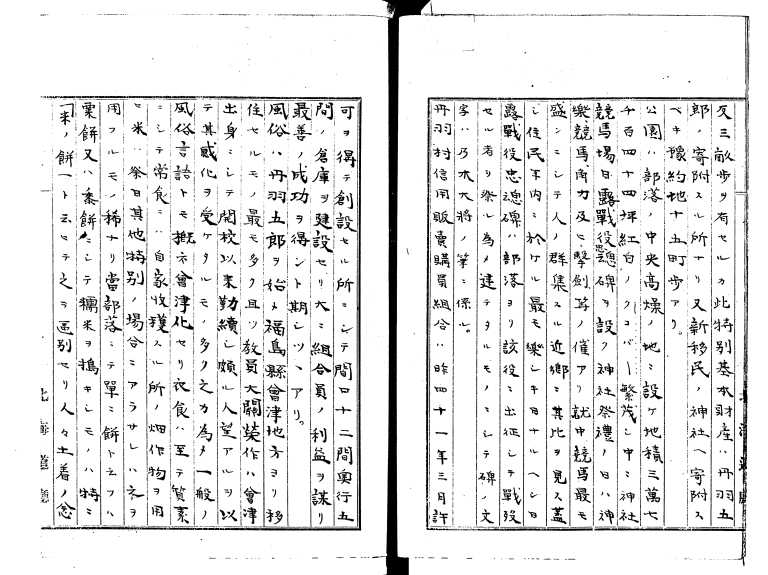 反三畝歩ヲ有セルカ此特別基本財産ハ丹羽五
郎ノ寄附スル所ナリ又新移民ノ神社ヘ寄附ス
ベキ豫約地十五町歩アリ。
公園ハ部落ノ中央高燥ノ地ニ設ケ地積三萬七
千百四十四坪紅白ノクローバー繁茂シ中ニ神社
競馬場日露戰役忠魂碑ヲ設ク神社祭禮ノ日ハ神
樂競馬角力及ヒ擊剣等ノ催アリ就中競馬最モ
盛ンニシテ人ノ群集スル近鄉ニ其比ヲ見ス蓋
シ住民年内ニ於ケル最モ樂シキ日ナルヘシ日
露戰役忠魂碑ハ部落ヨリ該役ニ出征シテ戰歿
セル者ヲ祭ル為メ建テタルモノニシテ碑ノ文
字ハ乃木大将ノ筆ニ係ル。
丹羽村信用販賣購買組合ハ昨四十一年三月許
可ヲ得テ創設セル所ニシテ間口十二間奥行五
間ノ倉庫ヲ建設セリ大ニ組合員ノ利益ヲ謀リ
最善ノ成功ヲ得ント期シツヽアリ。
風俗ハ丹羽五郎ヲ始メ福島縣會津地方ヨリ移
住セルモノ最モ多ク且ツ教員大關榮作ハ會津
出身ニシテ開校以来勤續シ頗ル人望アルヲ以
テ其感化ヲ受ケタルモノ多ク之カ為メ一般ノ
風俗言語トモ概ネ會津化セリ衣食ハ至テ質素
ニシテ常食ニハ自家收穫スル所ノ畑作物ヲ用
ヒ米ハ祭日其他特別ノ場合ニアラサレハ之ヲ
用フルモノ稀ナリ當部落ニテ單ニ餅ト云フハ
粟餅又ハ黍餅ニシテ糯米ヲ搗キシモノハ特ニ
「米ノ餅」ト云ヒテ之ヲ區別セリ人々土着ノ念
北海道廳